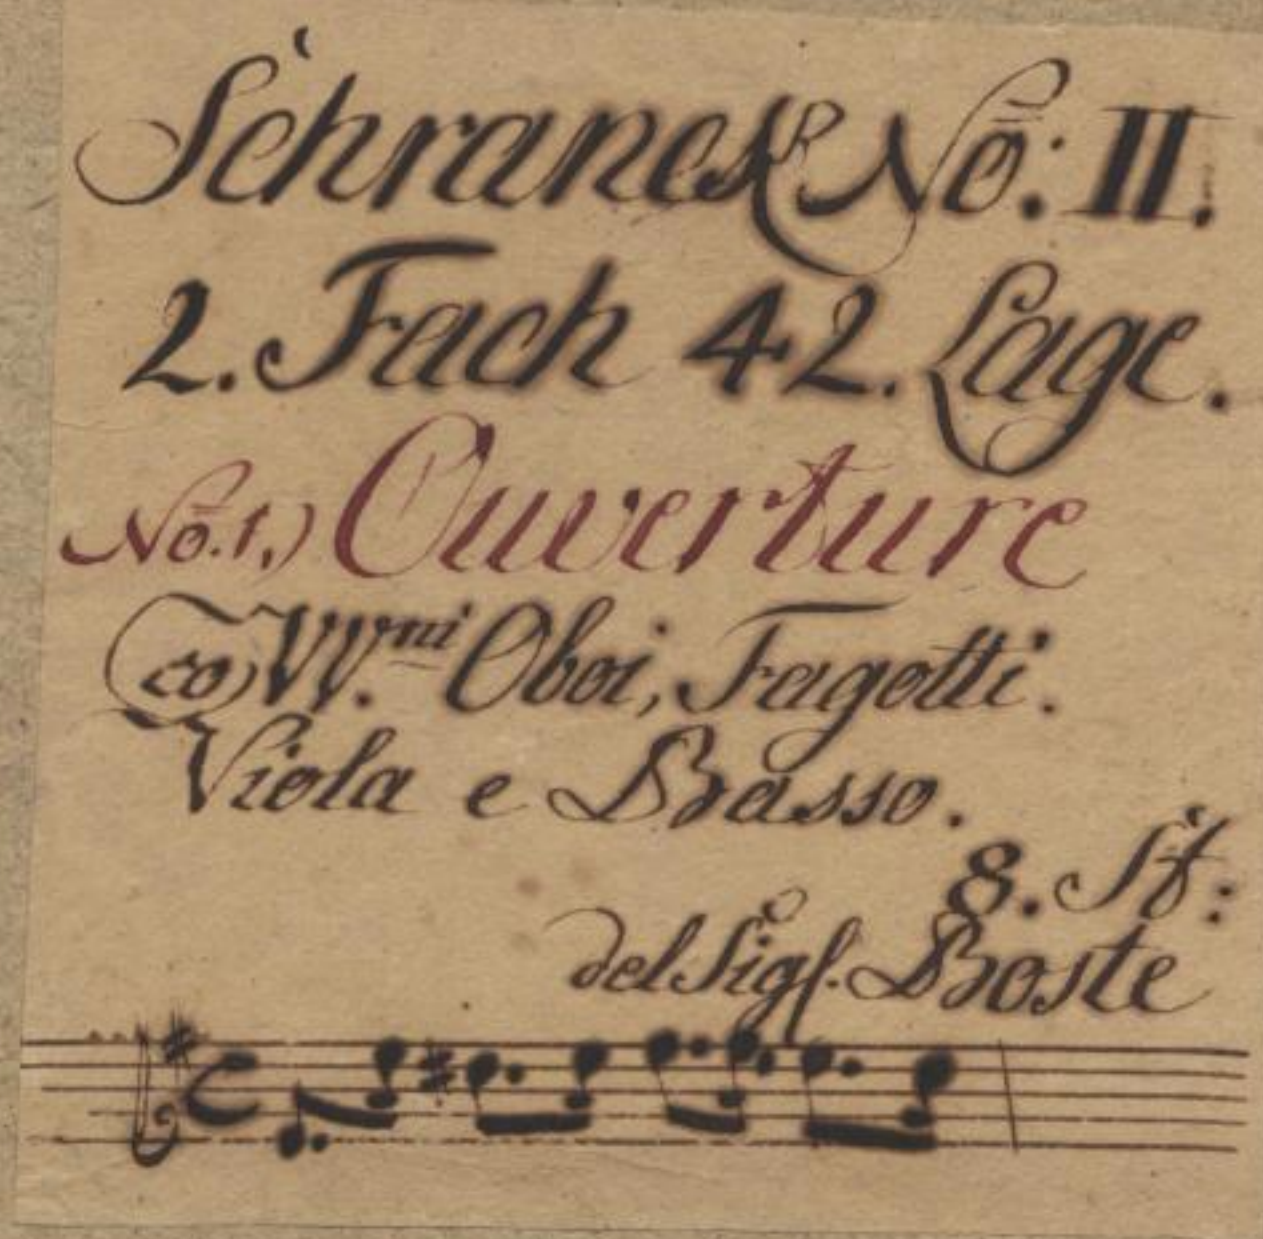 Schranck No: II.
2. Fach 42. Lage.
No. 1.) Ouverture
co VV.ni Oboi, Fagotti.
Viola e Basso.
8. St:
del Sigl. Boste